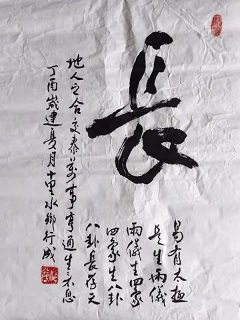 長
易有太極
是生兩儀
兩儀生四象
四象生八卦
八卦長存天
地人之合交泰萬事亨通生不息
丁酉歲建月十里水鄉行成